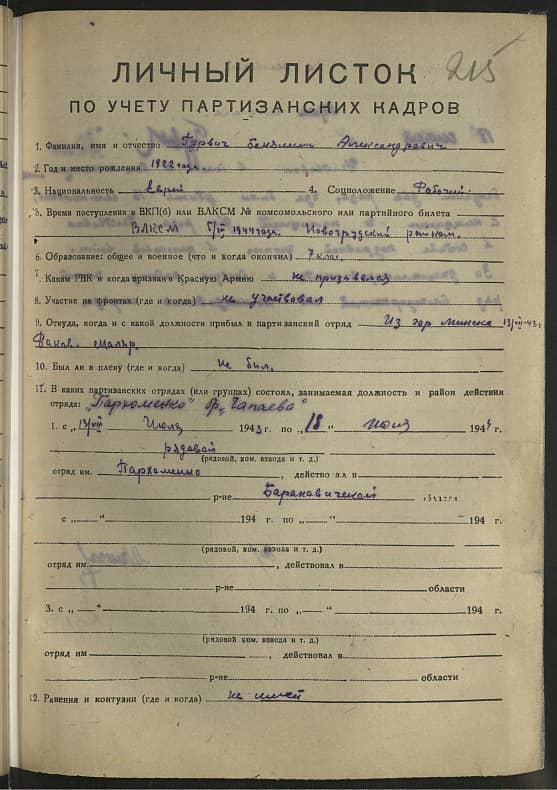 215
ЛИЧНЫЙ ЛИСТОК
ПО УЧЕТУ ПАРТИЗАНСКИХ КАДРОВ
1. Фамилия, имя и отчество Гурвич Бенямин Александрович
2. Год и место рождения 1922 года.
3. Национальность Еврей 4. Соцположение Рабочий.
5. Время поступления в ВКП(б) или ВЛКСМ № комсомольского или партийного билета
ВЛКСМ 1944 года. Новогрудский райком.
6. Образование: общее и военное (что и когда окончил) 7 клас.
7. Каким РВК и когда призван в Красную Армию не призывался
8. Участие на фронтах (где и когда) не участвовал
9. Откуда, когда и с какой должности прибыл в партизанский отряд Из гор минска 13/VII-43г.
маляр.
10. Был ли в плену (где и когда) Не был.
11. В каких партизанских отрядах (или группах) состоял, занимаемая должность и район действия
отряда: „Пархоменко" бр. „Чапаева"
1. с „13/VII Июля 1943 г. по „18 " июля 1944 г.
рядовой
(рядовой, ком. взвода и т. д.)
отряд им. Пархоменко, действовал в
р-не Барановичской области
с „ — " 194 г. по „ — " 194 г.
(рядовой, ком. взвода и т. д.)
отряд им. , действовал в
р-не области
3. с „ — " 194 г. по „ — " 194 г.
(рядовой, ком. взвода и т. д.)
отряд им , действовал в
р-не области
12. Ранения и контузии (где и когда) не имеет